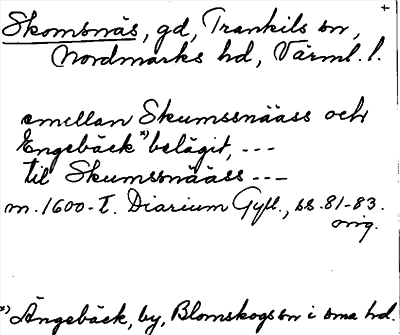 +
Skomsnäs, gd, Trankils sn,
Nordmarks hd, Värml. l.
emellan Skumssnääss och
Engebäck x) belägit, ---
til Skumssnääss ---
m. 1600-t. Diarium Gyll., ss. 81-83.
orig.
x) Ängebäck, by, Blomskogs sn i sma hd.